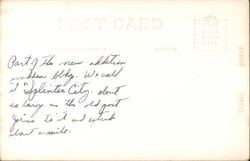 POST CARD
Part of the new addition
wooden bldg. We call
it "Splinter City. about
as large as the old post
joins to it and extends
about a mile.